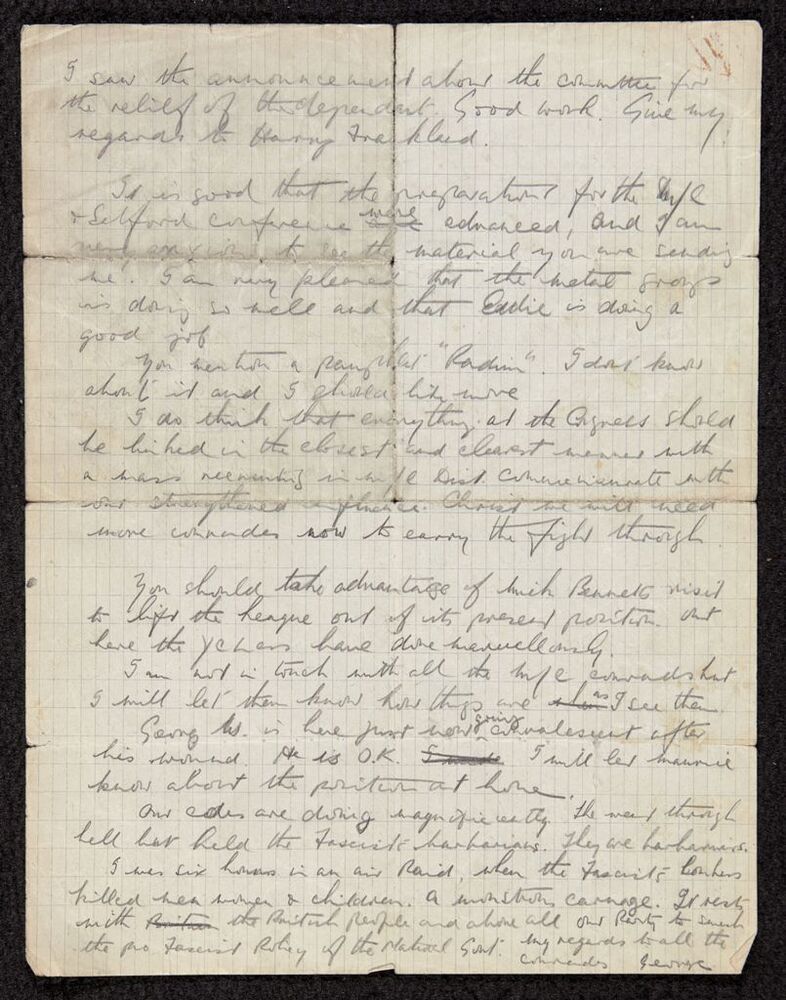 I saw the announcement about the committee for
the relief of the dependant. Good work. Give my
regards to Harry Frankland.
It is good that the preparations for the M/C
& Salford conference were advanced, and I am
very anxious to see the material you are sending
me. I am very pleased that the metal groups
is doing so well and that Eddie is doing a
good job
You mention a pamphlet "Radium". I dont know
about it and I should like more
I do think that everything at the Congress should
be linked in the closest and clearest manner with
a mass recruiting in M/C Dist. commensurate with
our strengthened influence. Christ we will need
more comrades now to carry the fight through.
You should take advantage of Mick Bennetts visit
to lift the League out of its present position. Out
here the YCLers have done marvellously.
I am not in touch with all the M/C comrades but
I will let them know how things are as I see them.
Georg W. is here just now going convalescent after
his wound. He is O.K. I will let Maurice
know about the position at home.
Our cdes are doing magnificently. The went through
hell but held the Fascist barbarians. They are barbarians.
I was six hours in an air Raid, when the Fascist bombers
killed men women & children. A monstrous carnage. It rests
with the British people and above all our Party to smash
the pro Fascist Policy of the National Govt. My regards to all the
comrades George